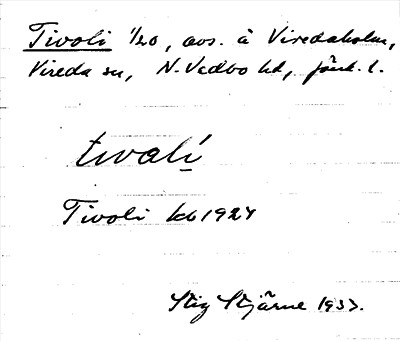 Tivoli 1/20, avs. å Viredaholm,
Vireda sn, N. Vedbo hd, Jönk. l.
tivalí
Tivoli kb 1927
Stig Stjärne 1933.